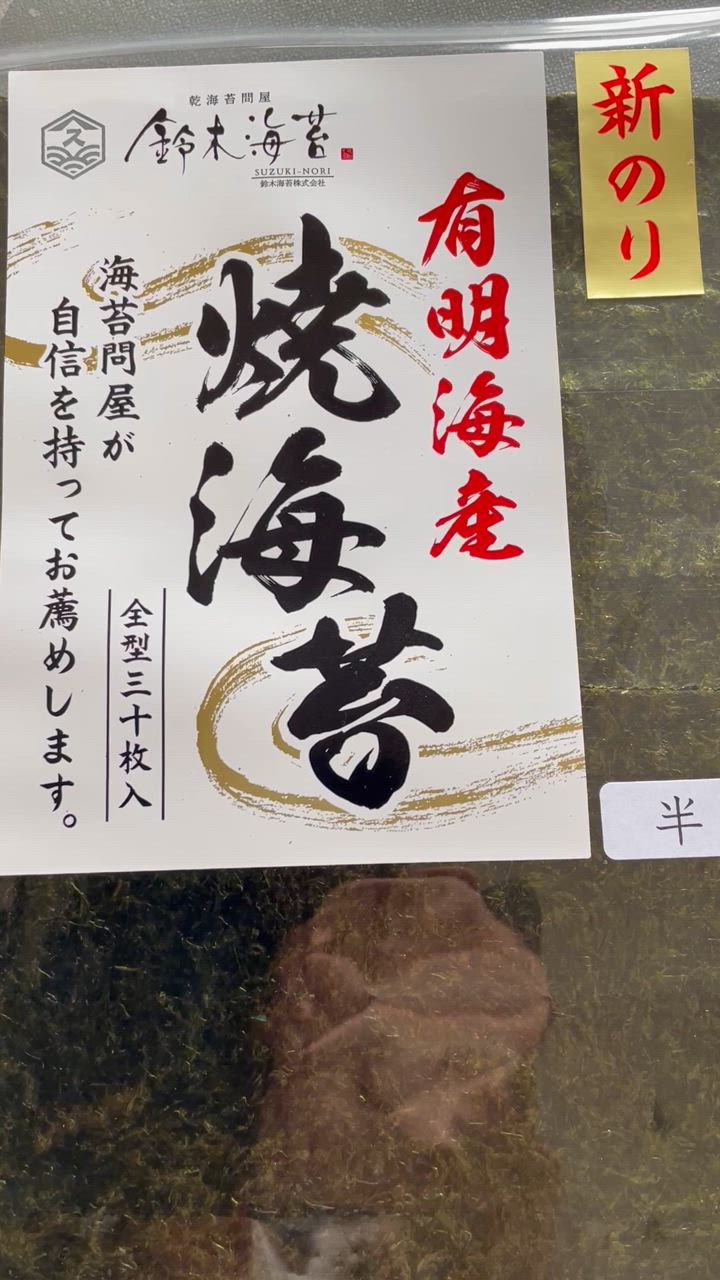 乾海苔問屋
鈴木海苔
SUZUKI-NORI
鈴木海苔株式会社
ス
新のり
有明海産
焼海苔
海苔問屋が
自信を持ってお薦めします。
全型三十枚入
半